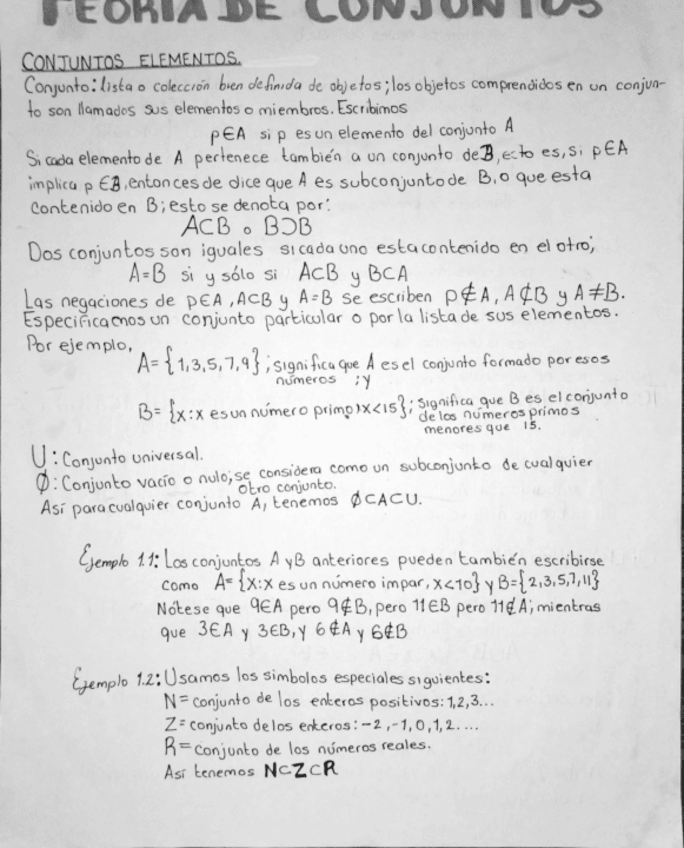 TEORIA DE CONJUNTOS
CONJUNTOS ELEMENTOS.
Conjunto: lista o colección bien definida de objetos; los objetos comprendidos en un conjun-
to son llamados sus elementos o miembros. Escribimos
p∈A si p es un elemento del conjunto A
Si cada elemento de A pertenece también a un conjunto de B, ecto es, si p∈A
implica p ∈B, entonces de dice que A es subconjunto de B, o que esta
contenido en B; esto se denota por:
A⊂B o B⊃B
Dos conjuntos son iguales si cada uno esta contenido en el otro;
A=B si y sólo si A⊂B y B⊂A
Las negaciones de p∈A, A⊂B y A=B se escriben p∉A, A⊄B y A≠B.
Especificamos un conjunto particular o por la lista de sus elementos.
Por ejemplo,
A={1,3,5,7,9}; significa que A es el conjunto formado por esos
números ; y
B= {x:x es un número primo, x<15}; significa que B es el conjunto
de los números primos
menores que 15.
U: Conjunto universal.
Ø: Conjunto vacío o nulo; se considera como un subconjunto de cualquier
otro conjunto.
Así para cualquier conjunto A, tenemos Ø⊂A⊂U.
Ejemplo 1.1: Los conjuntos A y B anteriores pueden también escribirse
como A={x:x es un número impar, x<10} y B={2,3,5,7,11}
Nótese que 9∈A pero 9∉B, pero 11∈B pero 11∉A; mientras
que 3∈A y 3∈B, y 6∉A y 6∉B
Ejemplo 1.2: Usamos los simbolos especiales siguientes:
N=conjunto de los enteros positivos: 1,2,3...
Z=conjunto de los enteros: -2,-1,0,1,2....
R=conjunto de los números reales.
Así tenemos N⊂Z⊂R